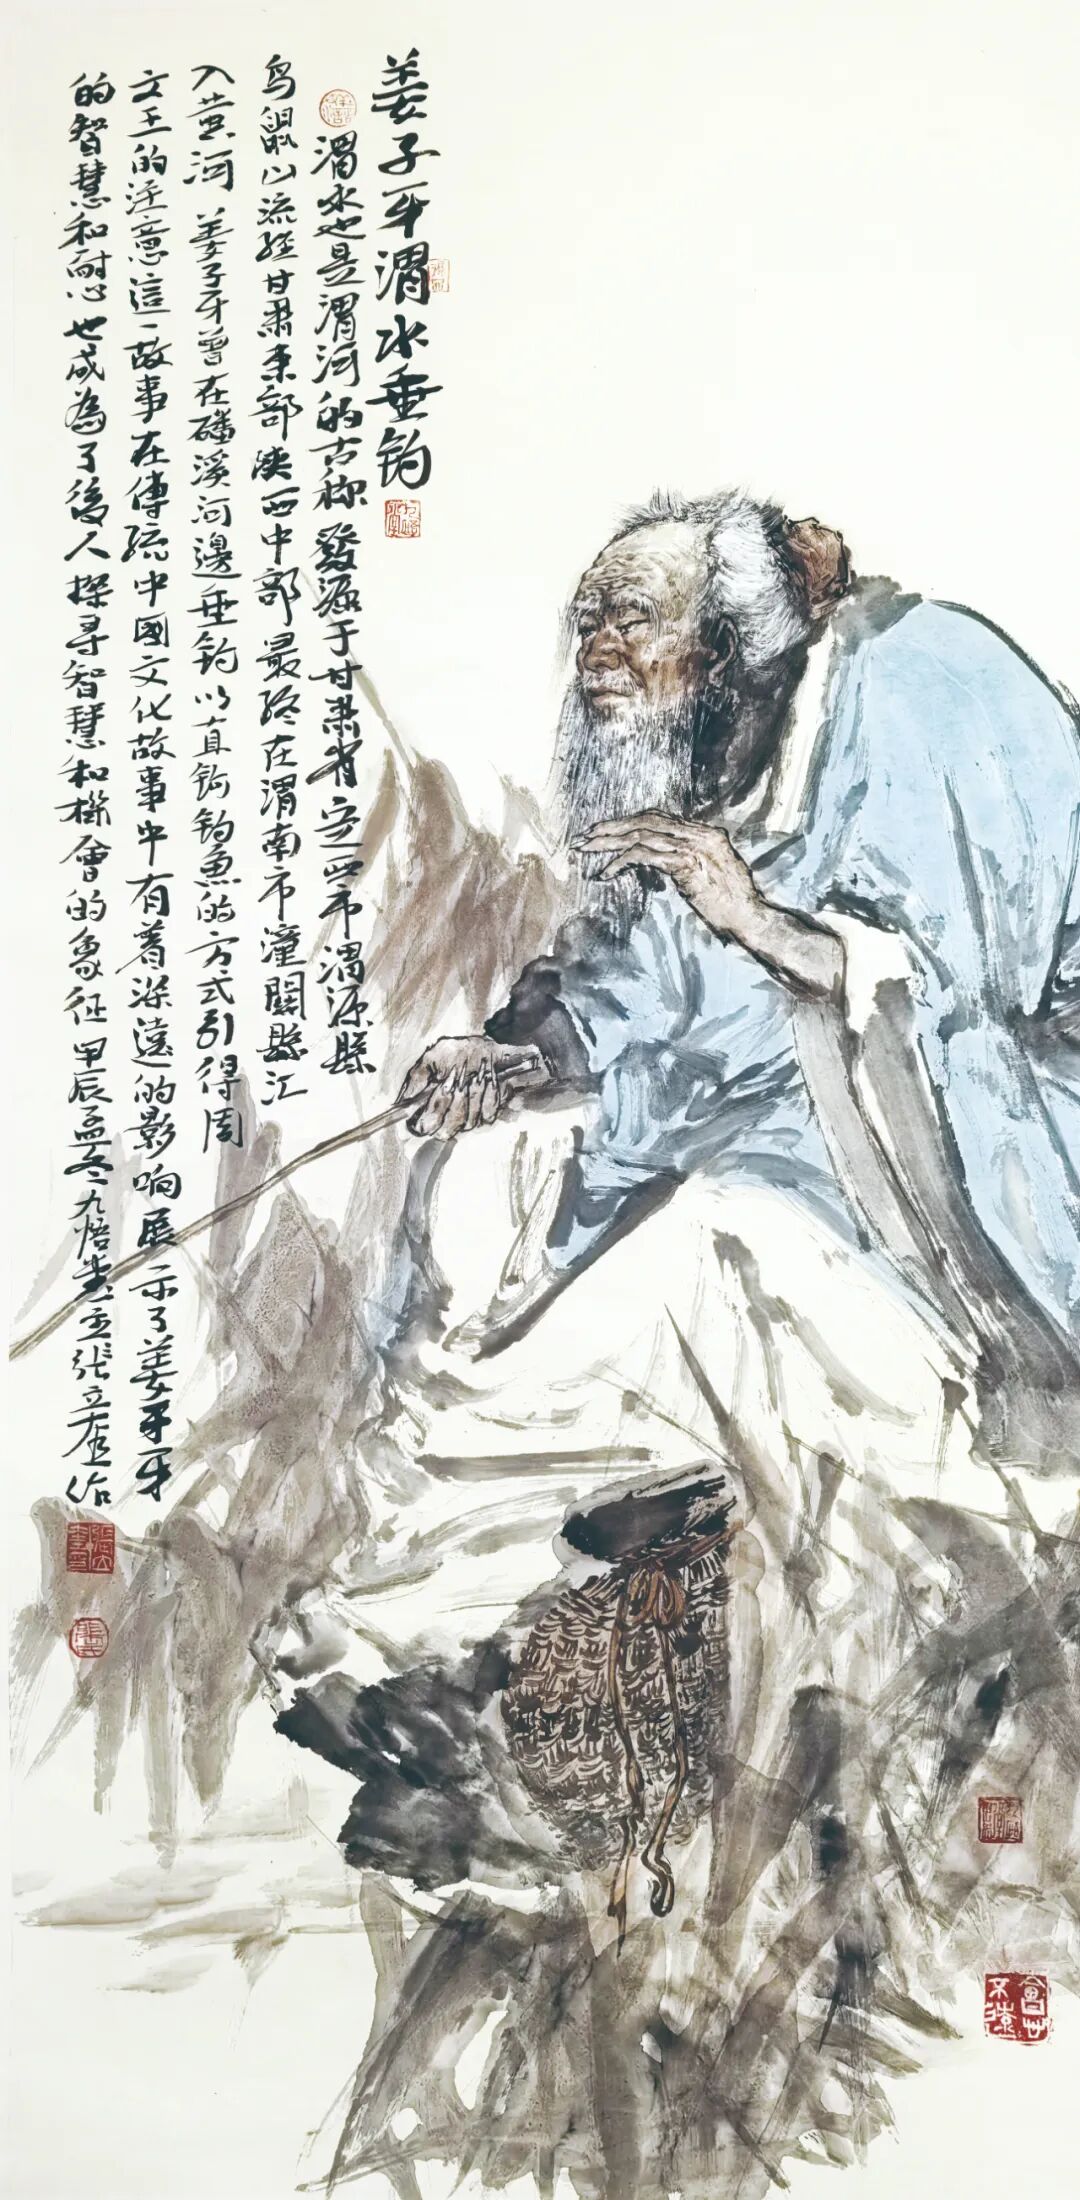 姜子牙渭水垂钓
渭水也是渭河的古称 發源于甘肅省定西市渭源縣
鸟鼠山流经甘肃東部陕西中部最终在渭南市潼關縣汇
入黄河 姜子牙曾在磻溪河邊垂钓以直钩钓魚的方式引得周
文王的注意這一故事在傳統中國文化故事中有着深遠的影响展示了姜子牙
的智慧和耐心也成為了後人探寻智慧和機會的象征 甲辰孟冬九悟堂主張立奎作